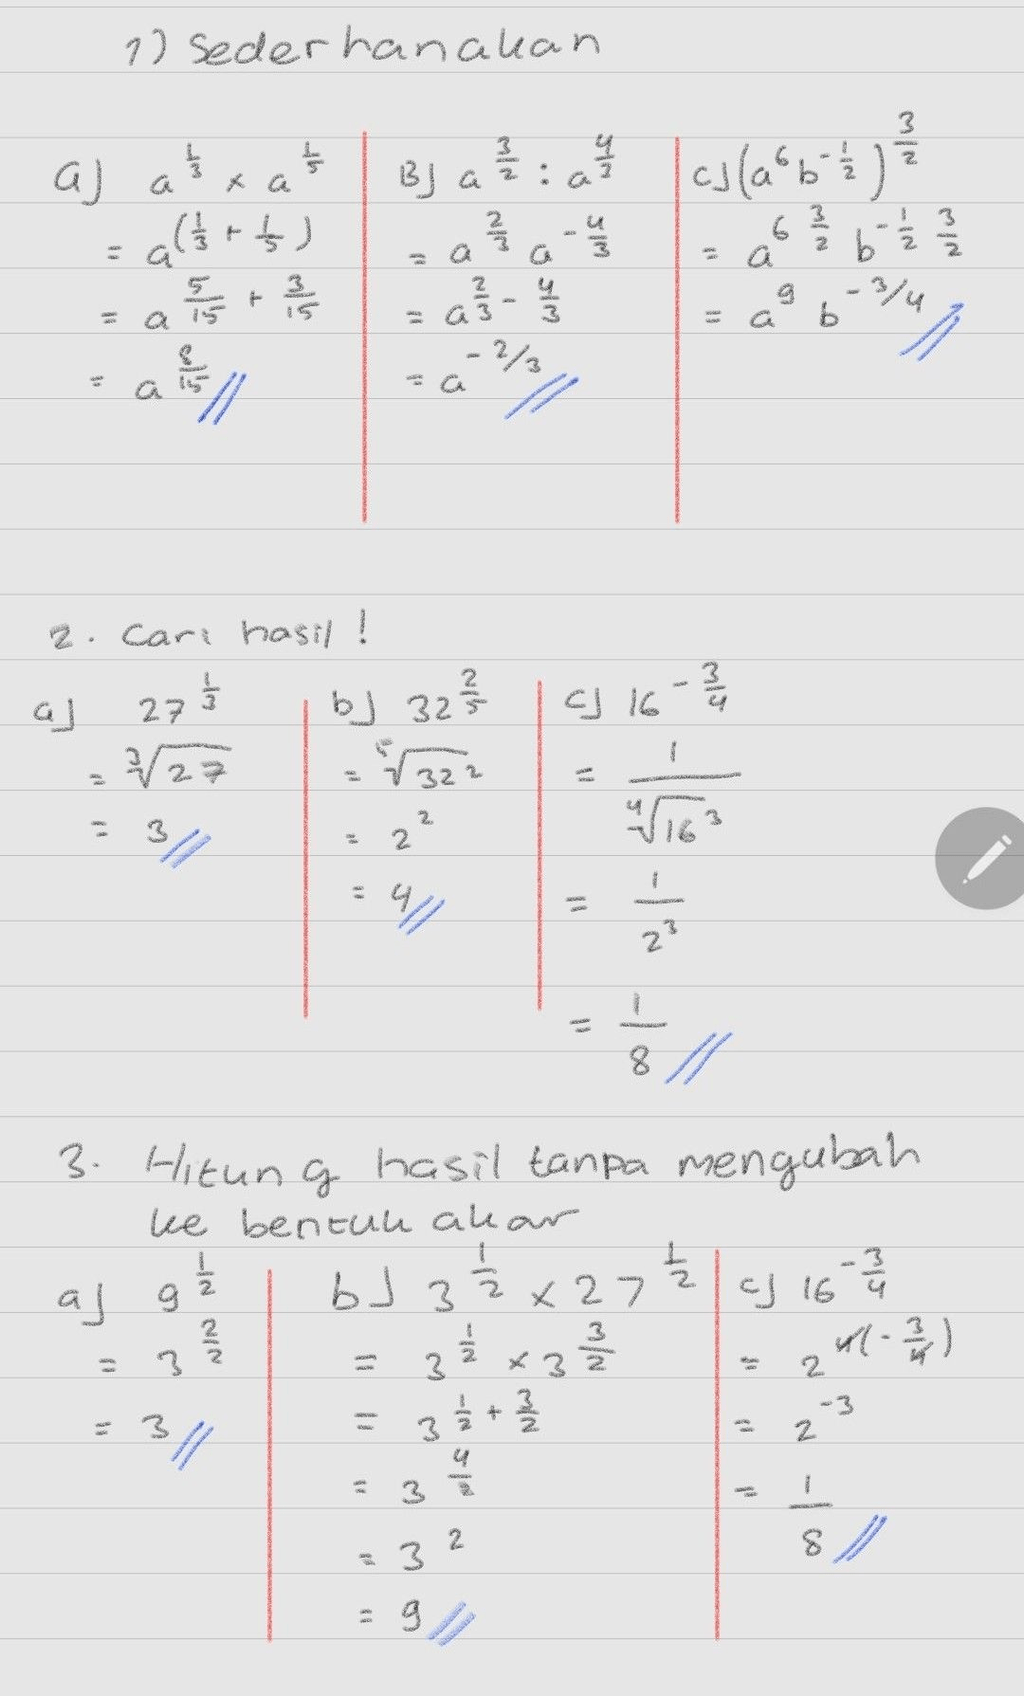 1) Sederhanakan
a) a^{1/3} × a^{1/5}
= a^{(1/3 + 1/5)}
= a^{5/15 + 3/15}
= a^{8/15}
B) a^{3/2} : a^{4/2}
= a^{2/3} a^{-4/3}
= a^{2/3 - 4/3}
= a^{-2/3}
c) (a^6 b^{-1/2})^{3/2}
= a^{6 3/2} b^{-1/2 3/2}
= a^9 b^{-3/4}
2. Cari hasil !
a) 27^{1/3}
= ∛27
= 3
b) 32^{2/5}
= ⁵√32²
= 2²
= 4
c) 16^{-3/4}
= 1/⁴√16³
= 1/2³
= 1/8
3. Hitung hasil tanpa mengubah
ke bentuk akar
a) 9^{1/2}
= 3^{2/2}
= 3
b) 3^{1/2} × 27^{1/2}
= 3^{1/2} × 3^{3/2}
= 3^{1/2 + 3/2}
= 3^{4/2}
= 3²
= 9
c) 16^{-3/4}
= 2^{4(-3/4)}
= 2^{-3}
= 1/8